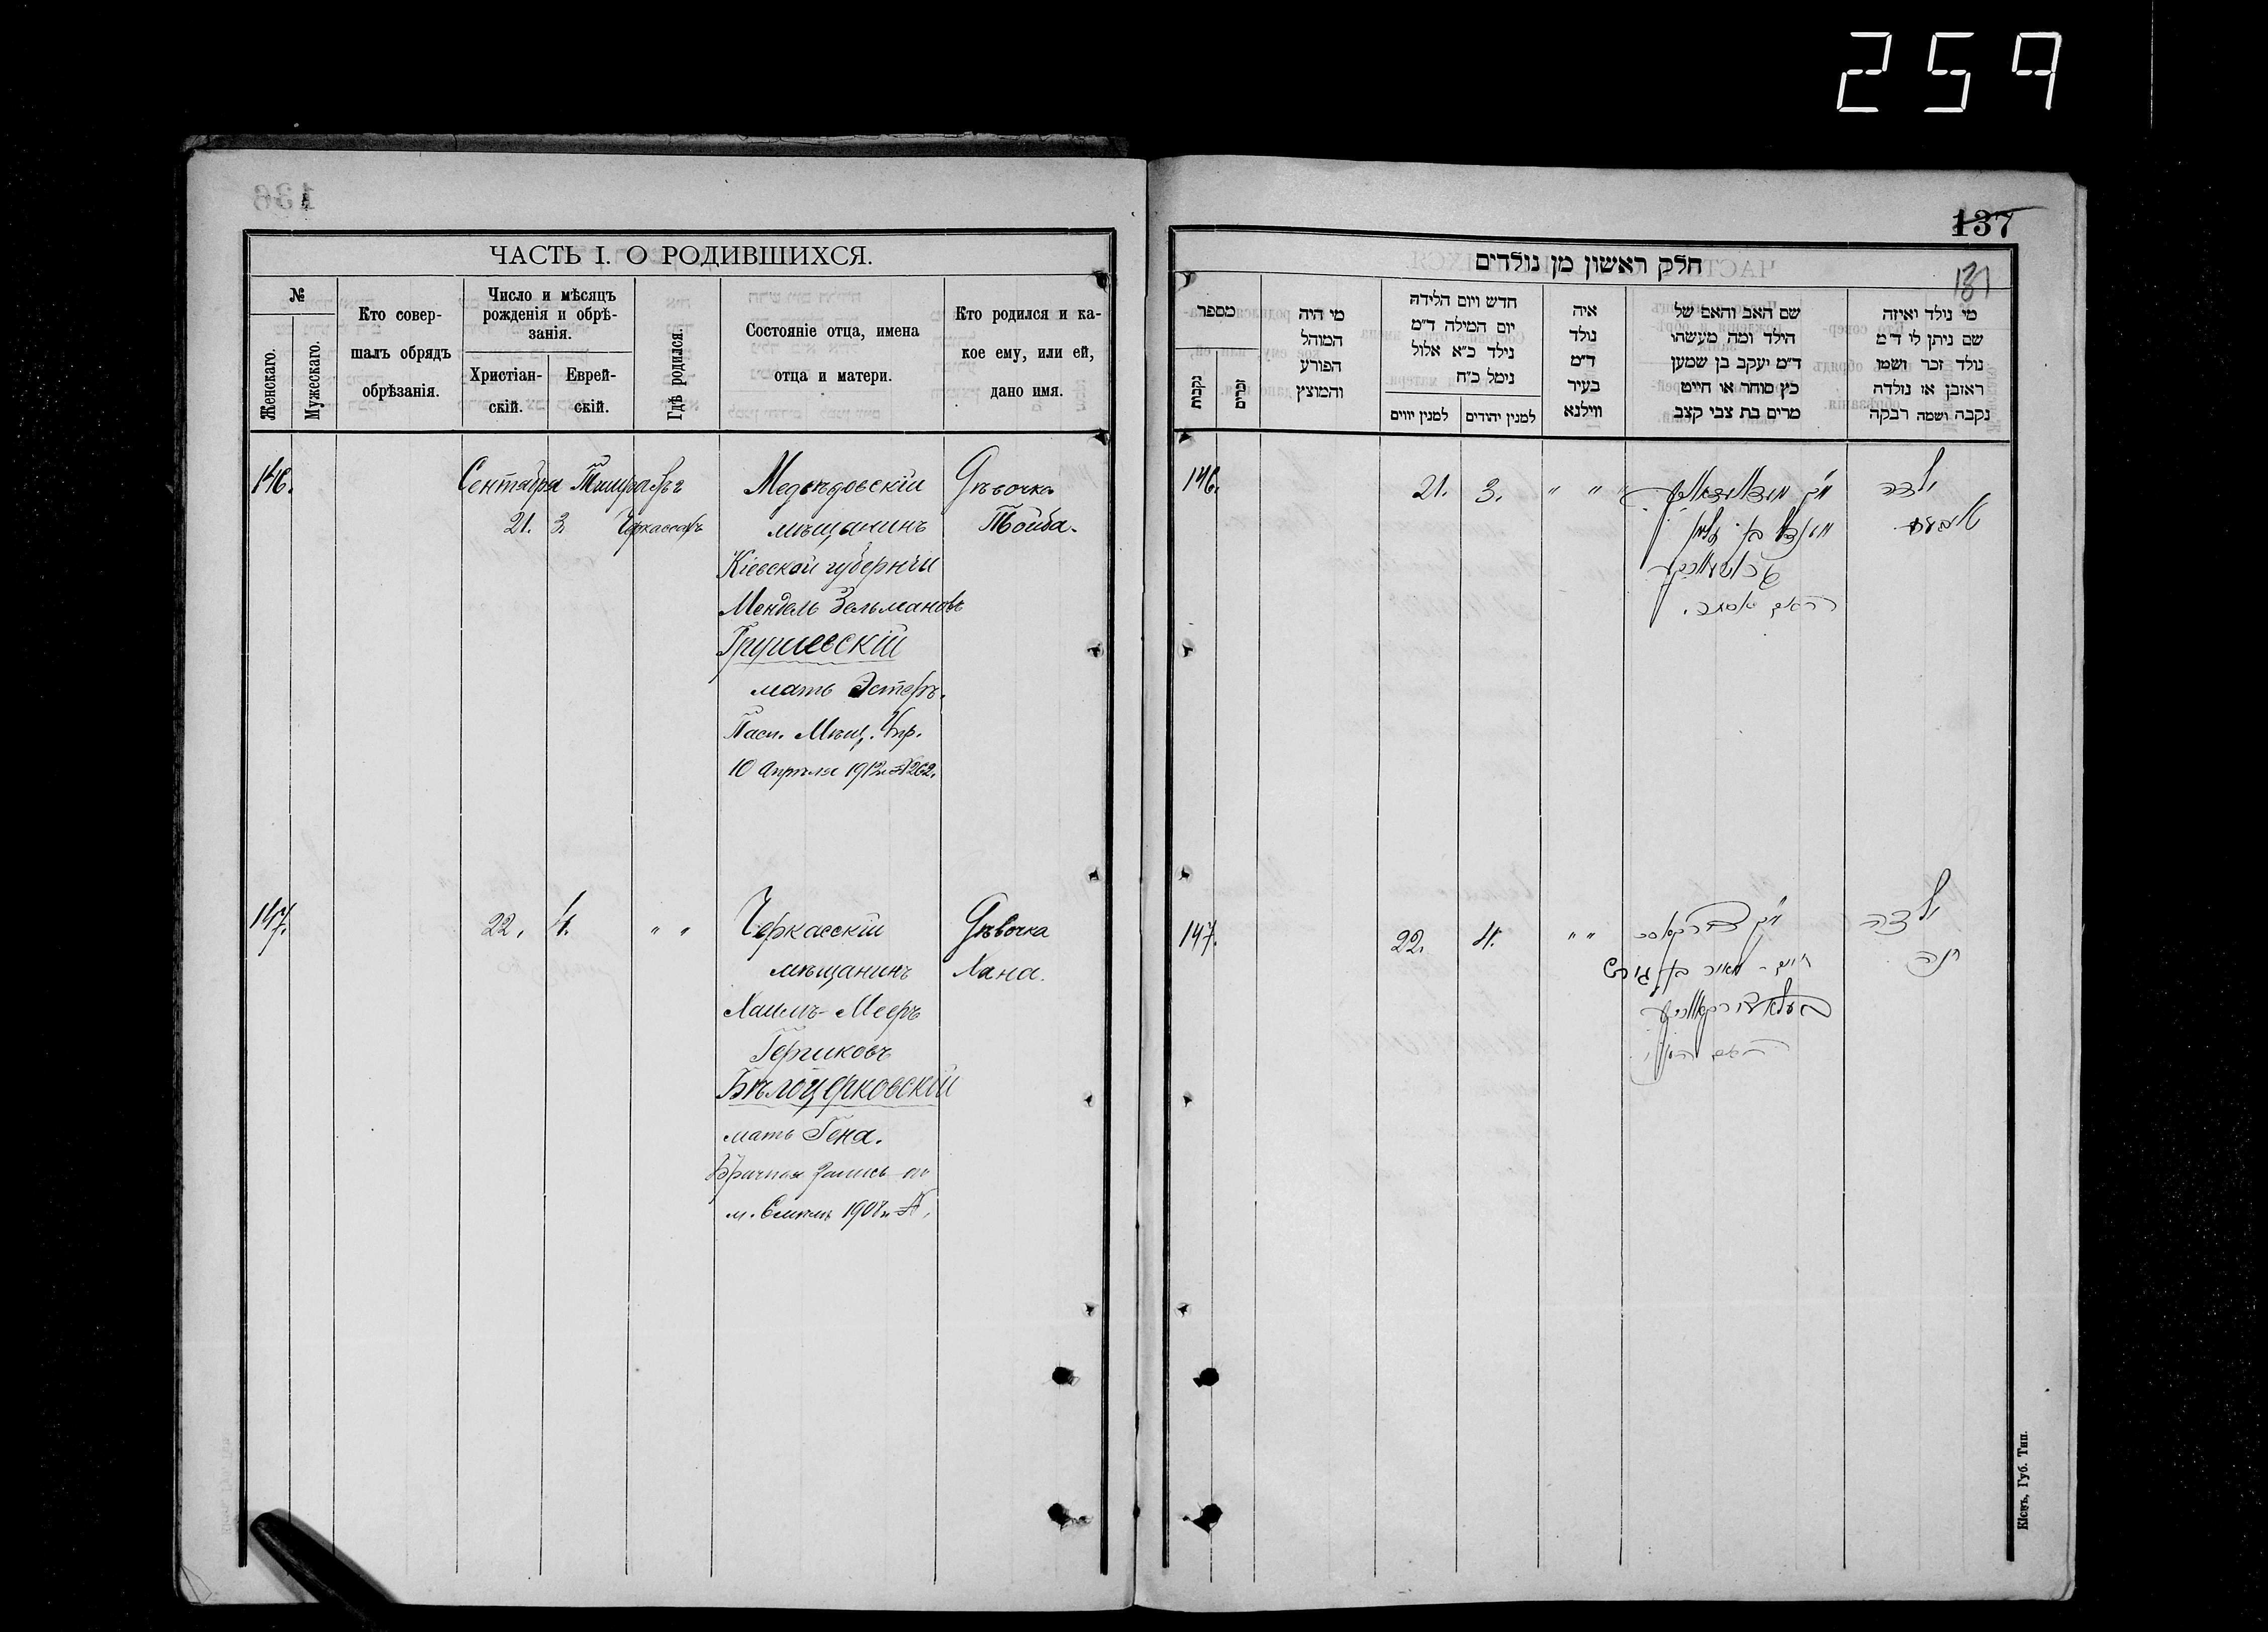 259
137
131
136
ЧАСТЬ I. О РОДИВШИХСЯ.
№
Женскаго.
Мужескаго.
Кто совер-
шалъ обрядъ
обрѣзанія.
Число и мѣсяцъ
рожденія и обрѣ-
занія.
Христіан-
скій.
Еврей-
скій.
Гдѣ родился.
Состояніе отца, имена
отца и матери.
Кто родился и ка-
кое ему, или ей,
дано имя.
146.
Сентября
21.
3.
Черкассахъ
Медвѣдовскій
мѣщанинъ
Кіевской губерніи
Мендель Зельмановъ
Грушевскій
мать Эстеръ.
Пасп. Мѣщ. Упр.
10 Апрѣля 1912 г. № 262.
Дѣвочка
Тойба.
147.
22.
4.
" "
Черкасскій
мѣщанинъ
Хаимъ-Мееръ
Гершковъ
Бѣлоцерковскій
мать Гена.
Брачная запись
м. 1908 г. №
Дѣвочка
Хана.
חלק ראשון מן נולדים
מספר
נקבות
זכרים
מי היה
המוהל
הפורע
והמוצץ
חדש ויום הלידה
יום המילה ד"מ
נילד כ"א אלול
נימל כ"ח
למנין יווים
למנין יהודים
איה
נולד
ד"מ
בעיר
ווילנא
שם האב והאם של
הילד ומה מעשהו
ד"מ יעקב בן שמען
כץ סוחר או חייט
מרים בת צבי קצב
מי נילד ואיזה
שם ניתן לו ד"מ
נולד זכר ושמו
ראובן או נולדה
נקבה ושמה רבקה
146.
21.
3.
" " "
מענדל בן זלמן
האם אסתר.
ילדה
טויבע
147.
22.
4.
" "
חיים - מאיר בן הירש
ילדה
חנה
Кіевъ, Губ. Тип.